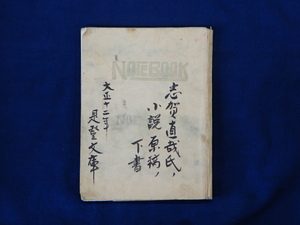 NOTEBOOK
志賀直哉氏、
小説原稿、
下書
大正十二年
見登文庫